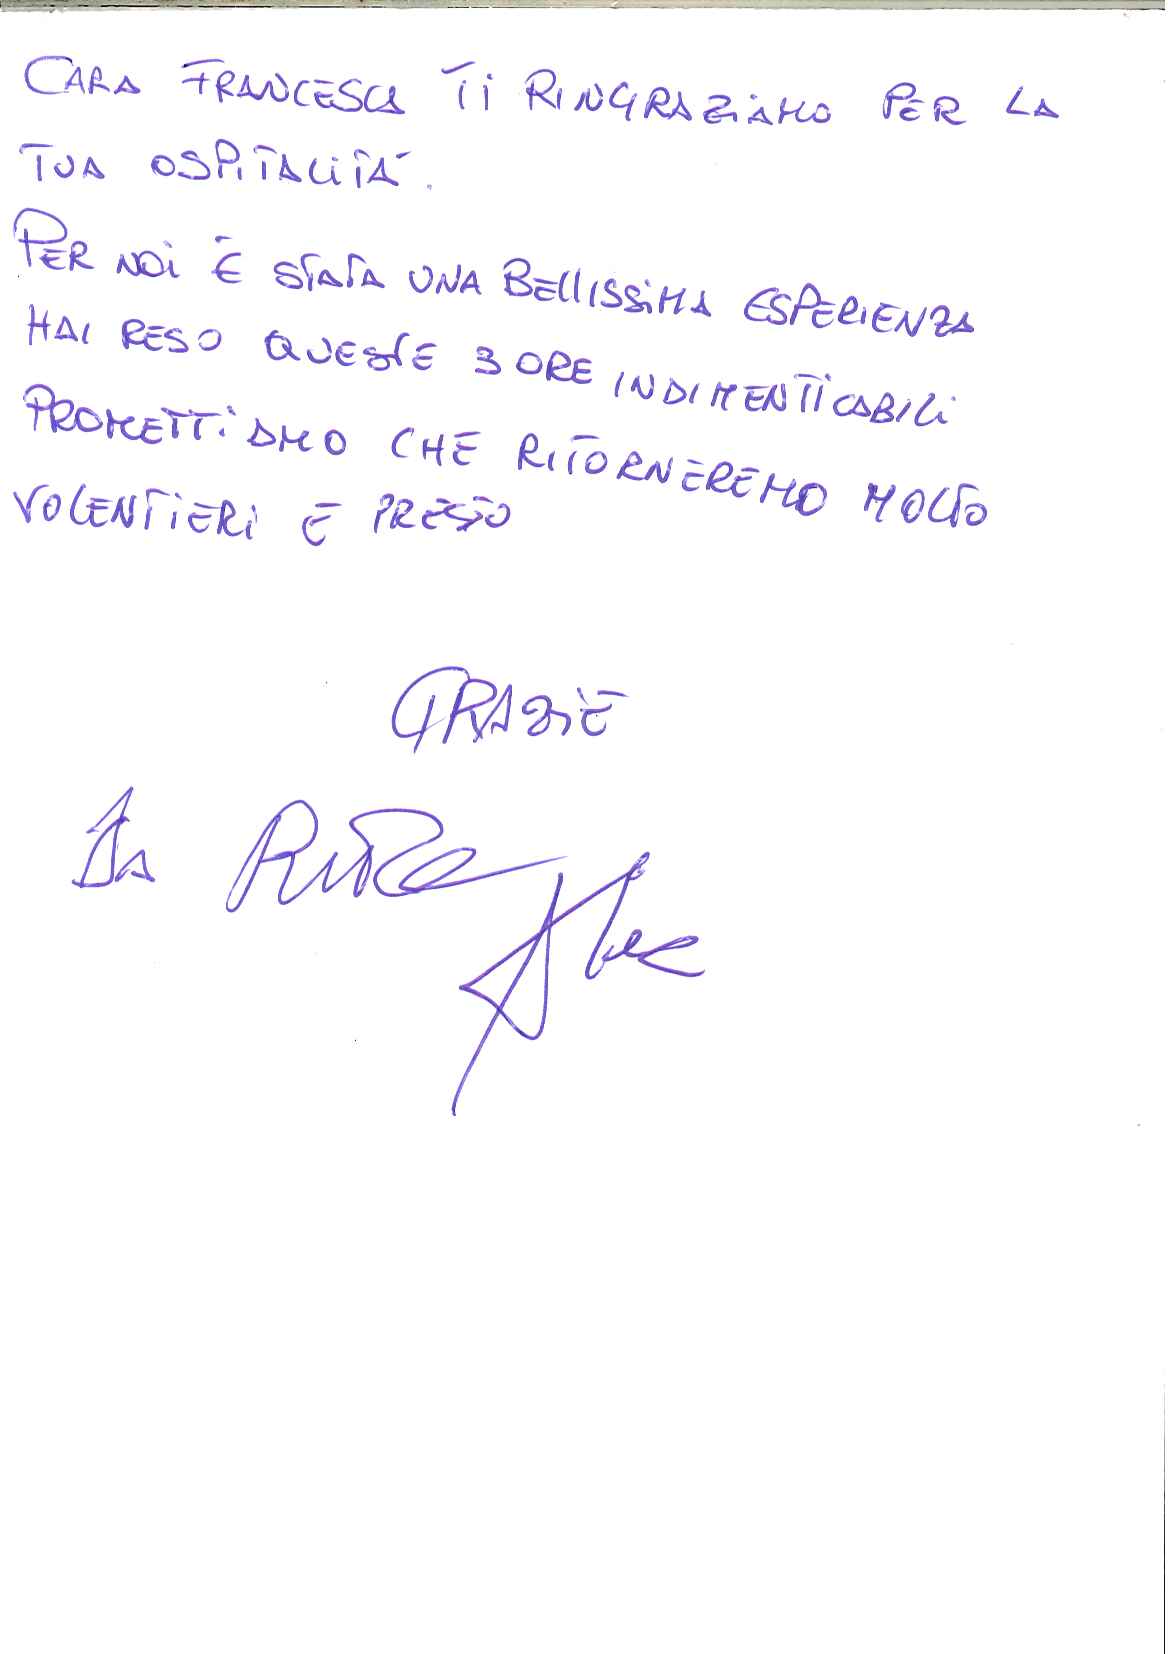 CARA FRANCESCA TI RINGRAZIAMO PER LA
TUA OSPITALITÀ.
PER NOI È STATA UNA BELLISSIMA ESPERIENZA
HAI RESO QUESTE 3 ORE INDIMENTICABILI
PROMETTIAMO CHE RITORNEREMO MOLTO
VOLENTIERI E PRESTO
GRAZIE
DA